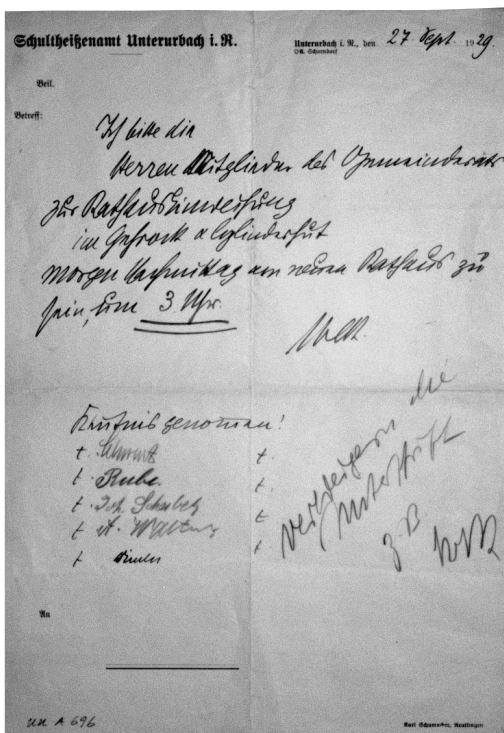 Schultheißenamt Unterurbach i. R.
Unterurbach i. R., den 27. Sept. 1929.
OA. Schorndorf
Beil.
Betreff:
Ich bitte die
Herren Mitglieder des Gemeinderats
zur Rathauseinweihung
im Gehrock u Cylinderhut
morgen Nachmittag am neuen Rathaus zu
sein, um 3 Uhr.
Kentnis genomen!
t.
t. Rube.
t. Joh. Schabel
t. A.
t
t.
t.
t.
t
die
z. B
An
UU A 696
Karl Schumacher, Reutlingen